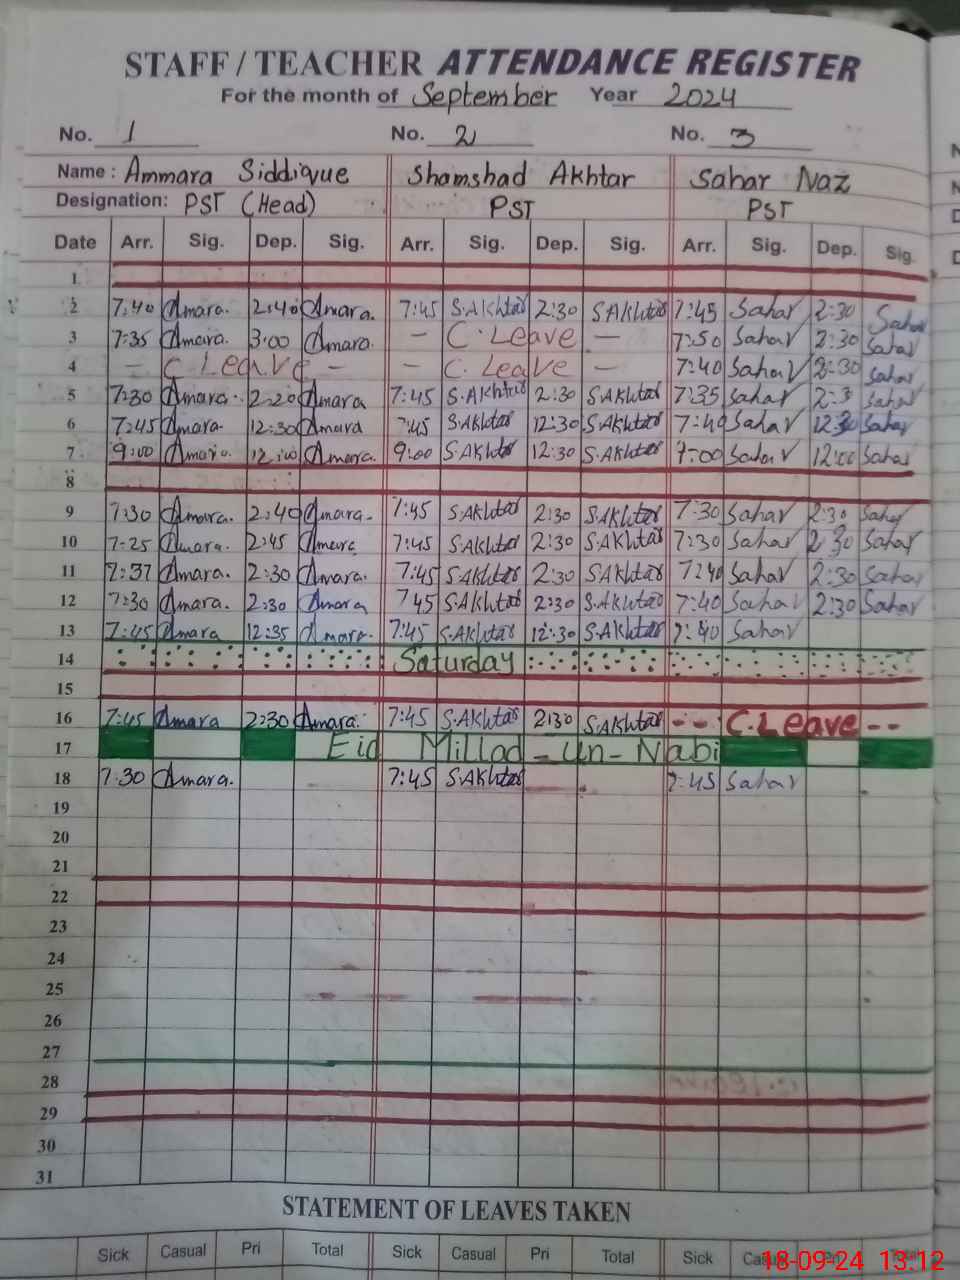 STAFF / TEACHER ATTENDANCE REGISTER
For the month of September Year 2024
No. 1 No. 2 No. 3
Name : Ammara Siddique Shamshad Akhtar Sahar Naz
Designation: PST (Head) PST PST
Date Arr. Sig. Dep. Sig. Arr. Sig. Dep. Sig. Arr. Sig. Dep. Sig.
1
2 7:40 Amara. 2:40 Amara. 7:45 S.Akhtar 2:30 S.Akhtar 7:45 Sahar 2:30 Sahar
3 7:35 Amara. 3:00 Amara. - C. Leave - 7:50 Sahar 2:30 Sahar
4 - C Leave - - C. Leave - 7:40 Sahar 2:30 Sahar
5 7:30 Amara. 2:20 Amara 7:45 S.Akhtar 2:30 S.Akhtar 7:35 Sahar Sahar
6 7:45 Amara. 12:30 Amara 7:45 S.Akhtar 12:30 S.Akhtar 7:40 Sahar 12:30 Sahar
7 9:00 Amara. 12:00 Amara. 9:00 S.Akhtar 12:30 S.Akhtar 9:00 Sahar 12:00 Sahar
8
9 7:30 Amara. 2:40 Amara. 7:45 S.Akhtar 2:30 S.Akhtar 7:30 Sahar 2:30 Sahar
10 7:25 Amara. 2:45 Amara 7:45 S.Akhtar 2:30 S.Akhtar 7:30 Sahar 2:30 Sahar
11 7:37 Amara. 2:30 Amara. 7:45 S.Akhtar 2:30 S.Akhtar 7:40 Sahar 2:30 Sahar
12 7:30 Amara. 2:30 Amara 7 45 S.Akhtar 2:30 S.Akhtar 7:40 Sahar 2:30 Sahar
13 7:45 Amara 12:35 Amara. 7:45 S.Akhtar 12:30 S.Akhtar 7:40 Sahar
14 Saturday
15
16 7:45 Amara 2:30 Amara. 7:45 S.Akhtar 2:30 S.Akhtar -- C.Leave --
17 Eid Millad-un-Nabi
18 7:30 Amara. 7:45 S.Akhtar 7:45 Sahar
19
20
21
22
23
24
25
26
27
28
29
30
31
STATEMENT OF LEAVES TAKEN
Sick Casual Pri Total Sick Casual Pri Total Sick Casual Pri Total
18-09-24 13:12